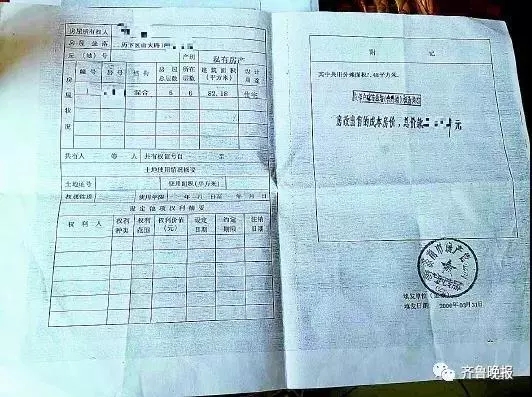 房屋所有权人
房屋坐落 历下区山大路
丘(地)号 产别 私有房产
幢号 房号 结构 房屋总层数 所在层数 建筑面积(平方米) 设计用途
房屋状况
混合 6 6 82.18 住宅
共有人 等 人 共有权证号自 至
土地使用情况摘要
土地证号 使用面积(平方米)
权属性质 使用年限 年 月 日 年 月 日
设定他项权利摘要
权利人 权利种类 权利范围 权利价值(元) 设定日期 约定期限 注销日期
附 记
其中共用分摊面积7.48平方米。
房改出售的成本房价,总价款 元
填发单位
填发日期:
齐鲁晚报